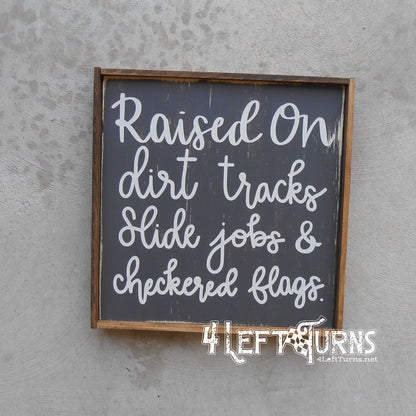 Raised On
dirt tracks
Slide jobs &
checkered flags.
4 Left Turns
4LeftTurns.net